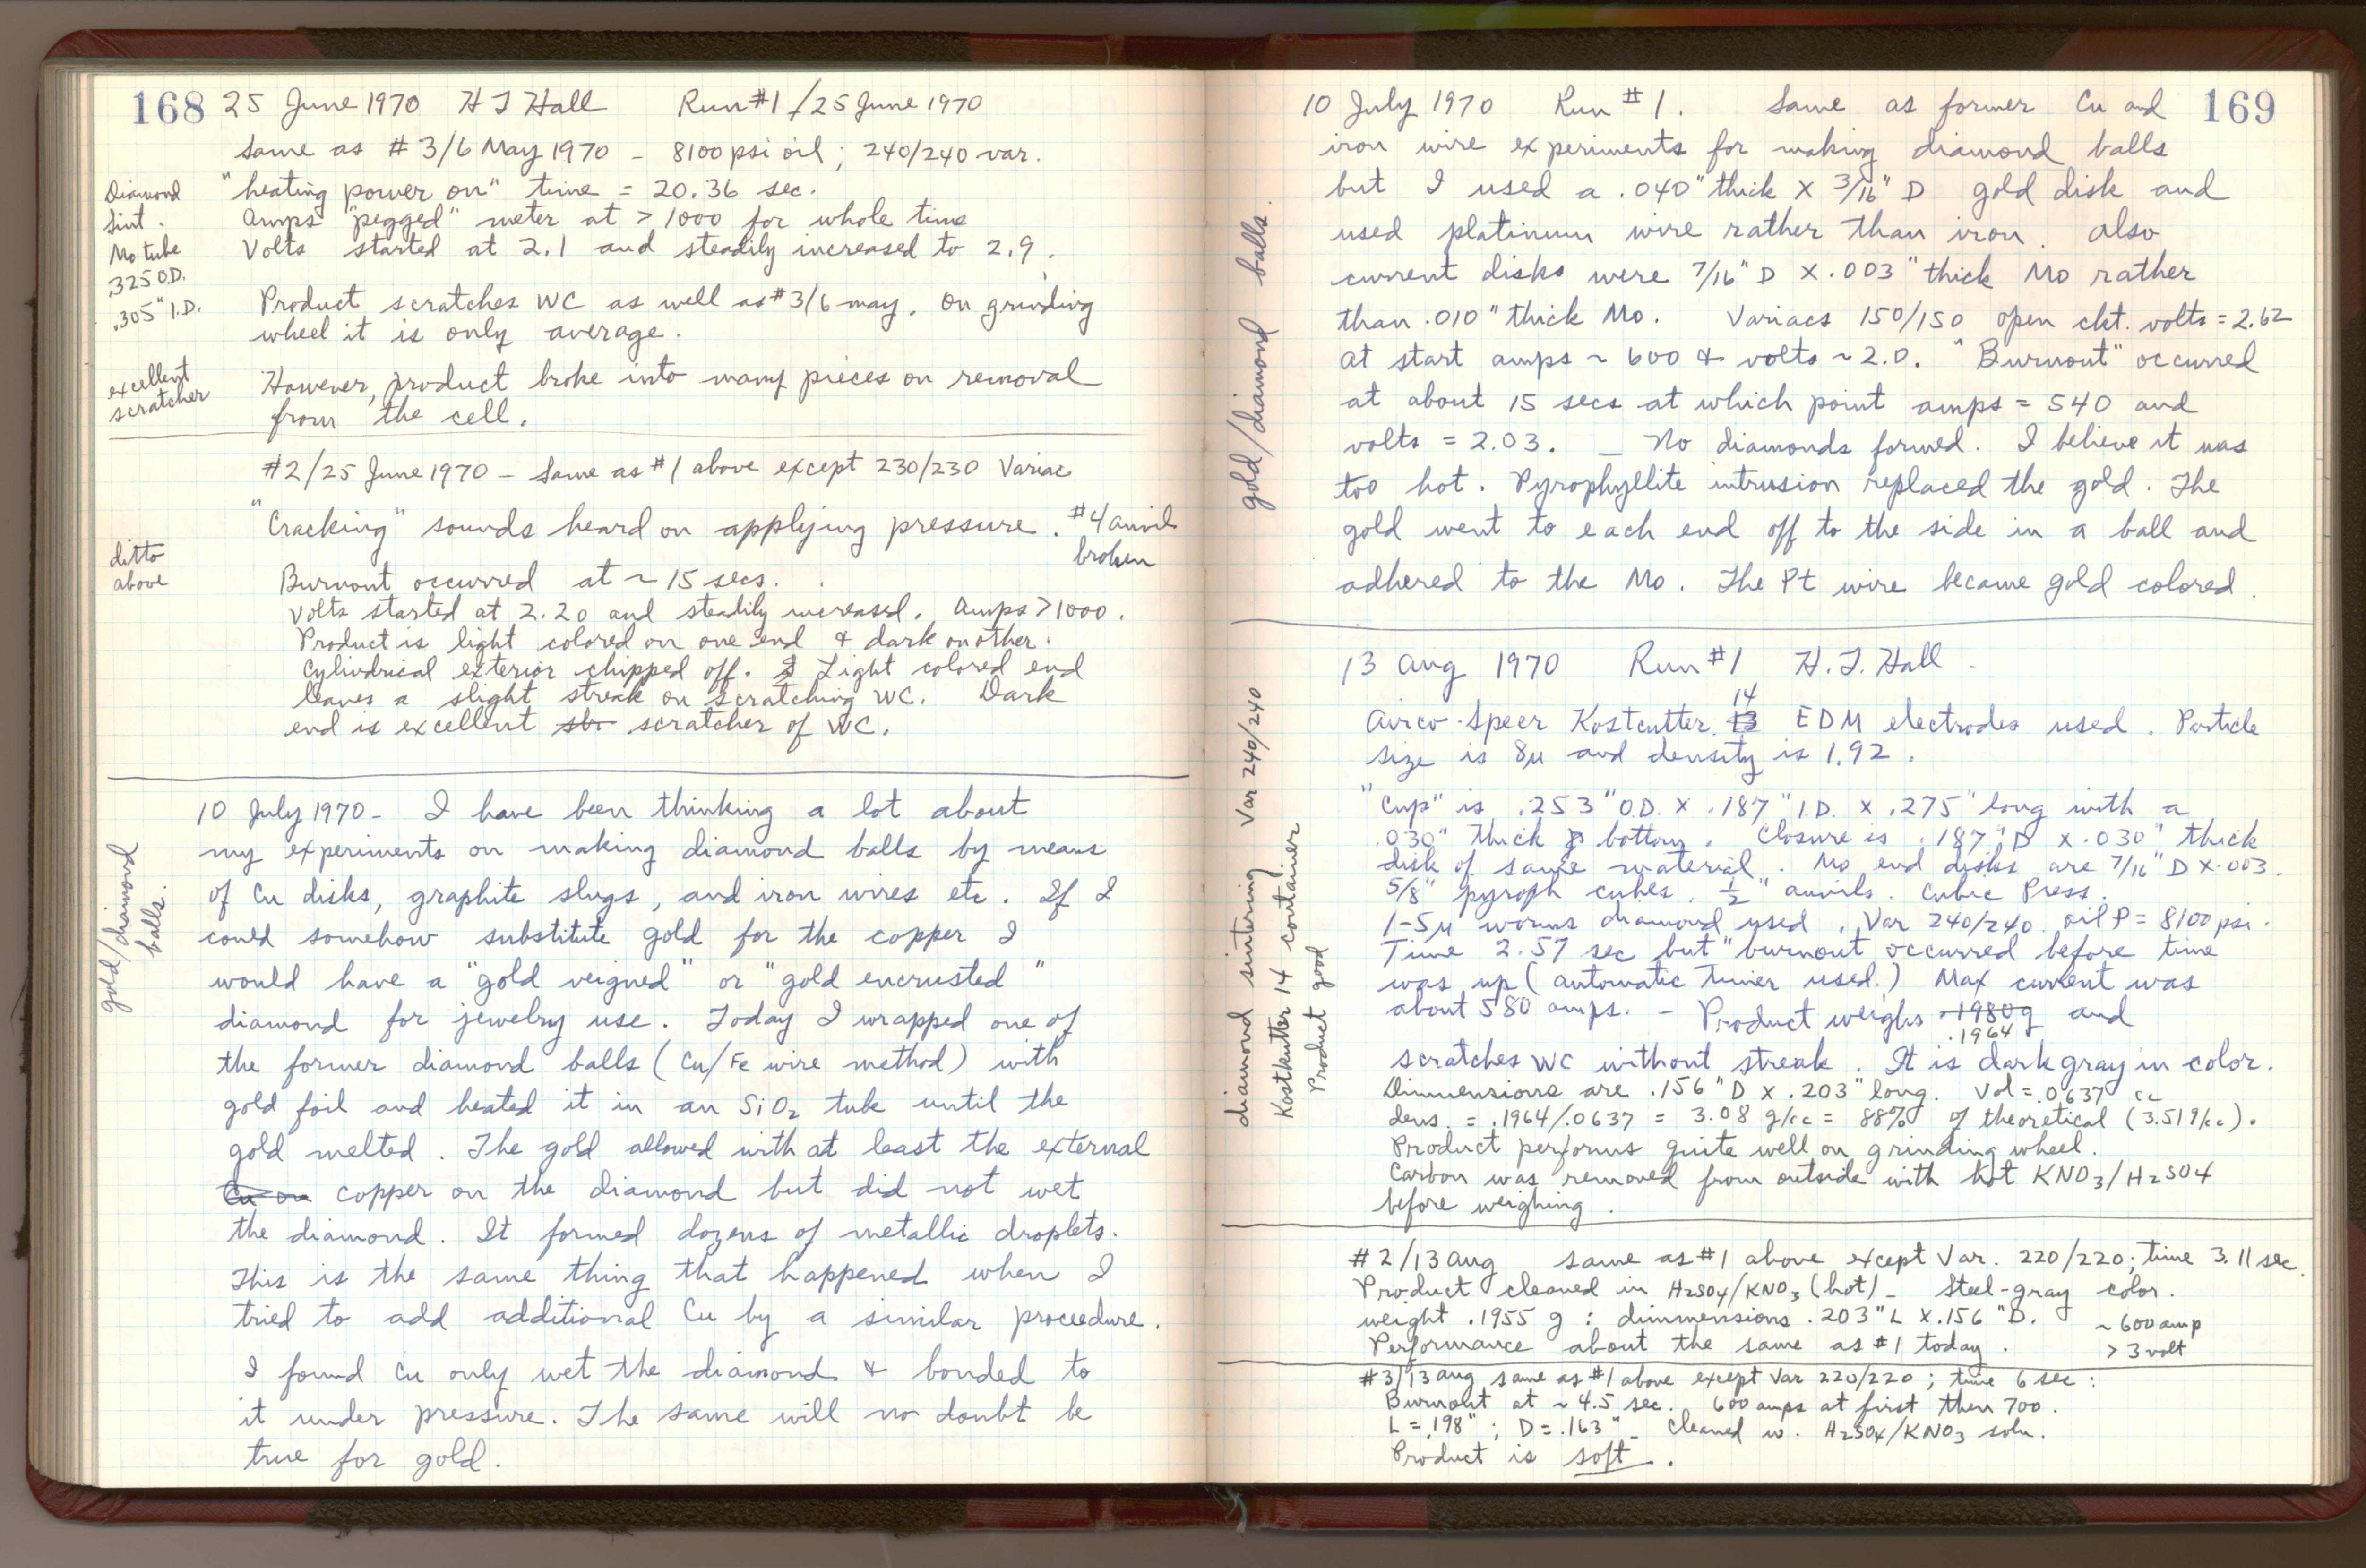 168 25 June 1970 H T Hall Run #1 / 25 June 1970
Same as # 3/6 May 1970 - 8100 psi oil ; 240/240 var.
Diamond
Sint.
Mo tube
.325 O.D.
.305" I.D.
"heating power on" time = 20.36 sec.
Amps "pegged" meter at > 1000 for whole time
Volts started at 2.1 and steadily increased to 2.9.
Product scratches WC as well as #3/6 may. On grinding
wheel it is only average.
excellent
scratcher
However, product broke into many pieces on removal
from the cell.
#2/25 June 1970 - Same as #1 above except 230/230 Variac
"Cracking" sounds heard on applying pressure. #4 anvil
broken
ditto
above
Burnout occurred at ~ 15 secs.
Volts started at 2.20 and steadily increased. Amps > 1000.
Product is light colored on one end & dark on other.
Cylindrical exterior chipped off. Light colored end
leaves a slight streak on scratching WC. Dark
end is excellent scratcher of WC.
gold/diamond
balls.
10 July 1970 - I have been thinking a lot about
my experiments on making diamond balls by means
of Cu disks, graphite slugs, and iron wires etc. If I
could somehow substitute gold for the copper I
would have a "gold veigned" or "gold encrusted"
diamond for jewelry use. Today I wrapped one of
the former diamond balls (Cu/Fe wire method) with
gold foil and heated it in an SiO2 tube until the
gold melted. The gold allowed with at least the external
Cu on copper on the diamond but did not wet
the diamond. It formed dozens of metallic droplets.
This is the same thing that happened when I
tried to add additional Cu by a similar proceedure.
I found Cu only wet the diamond & bonded to
it under pressure. The same will no doubt be
true for gold.
10 July 1970 Run #1. Same as former Cu and 169
iron wire experiments for making diamond balls
but I used a .040" thick X 3/16" D gold disk and
used platinum wire rather than iron. Also
current disks were 7/16" D X .003" thick Mo rather
than .010" thick Mo. Variacs 150/150 open ckt. volts = 2.62
At start amps ~ 600 & volts ~ 2.0. "Burnout" occurred
at about 15 secs at which point amps = 540 and
volts = 2.03. - No diamonds formed. I believe it was
too hot. Pyrophyllite intrusion replaced the gold. The
gold went to each end off to the side in a ball and
adhered to the Mo. The Pt wire became gold colored.
gold/diamond balls.
13 Aug 1970 Run #1 H.T. Hall
14
Airco-Speer Kostcutter 13 EDM electrodes used. Particle
size is 8µ and density is 1.92.
"Cup" is .253" O.D. X .187" I.D. X .275" long with a
.030" thick bottom. Closure is .187" D X .030" thick
disk of same material. Mo end disks are 7/16" D X .003.
5/8" pyroph cubes. 1/2" anvils. Cubic Press.
1-5µ worms diamond used. Var 240/240. oil P = 8100 psi.
Time 2.57 sec but "burnout occurred before time
was up (automatic timer used.) Max current was
about 580 amps. - Product weighs .1980g and
.1964
scratches WC without streak. It is dark gray in color.
Dimmensions are .156" D X .203" long. Vol = .0637 cc
dens. = .1964/.0637 = 3.08 g/cc = 88% of theoretical (3.51 g/cc).
Product performs quite well on grinding wheel.
Carbon was removed from outside with hot KNO3/H2SO4
before weighing.
diamond sintering Var 240/240
Kostkutter 14 container
Product good
#2/13 Aug same as #1 above except Var. 220/220; time 3.11 sec.
Product cleaned in H2SO4/KNO3 (hot) - Steel-gray color.
weight .1955 g : dimmensions .203" L X .156" D. ~ 600 amp
Performance about the same as #1 today. > 3 volt
#3/13 Aug same as #1 above except Var 220/220 ; time 6 sec :
Burnout at ~ 4.5 sec. 600 amps at first then 700.
L = .198" ; D = .163" - Cleaned w. H2SO4/KNO3 soln.
Product is soft.